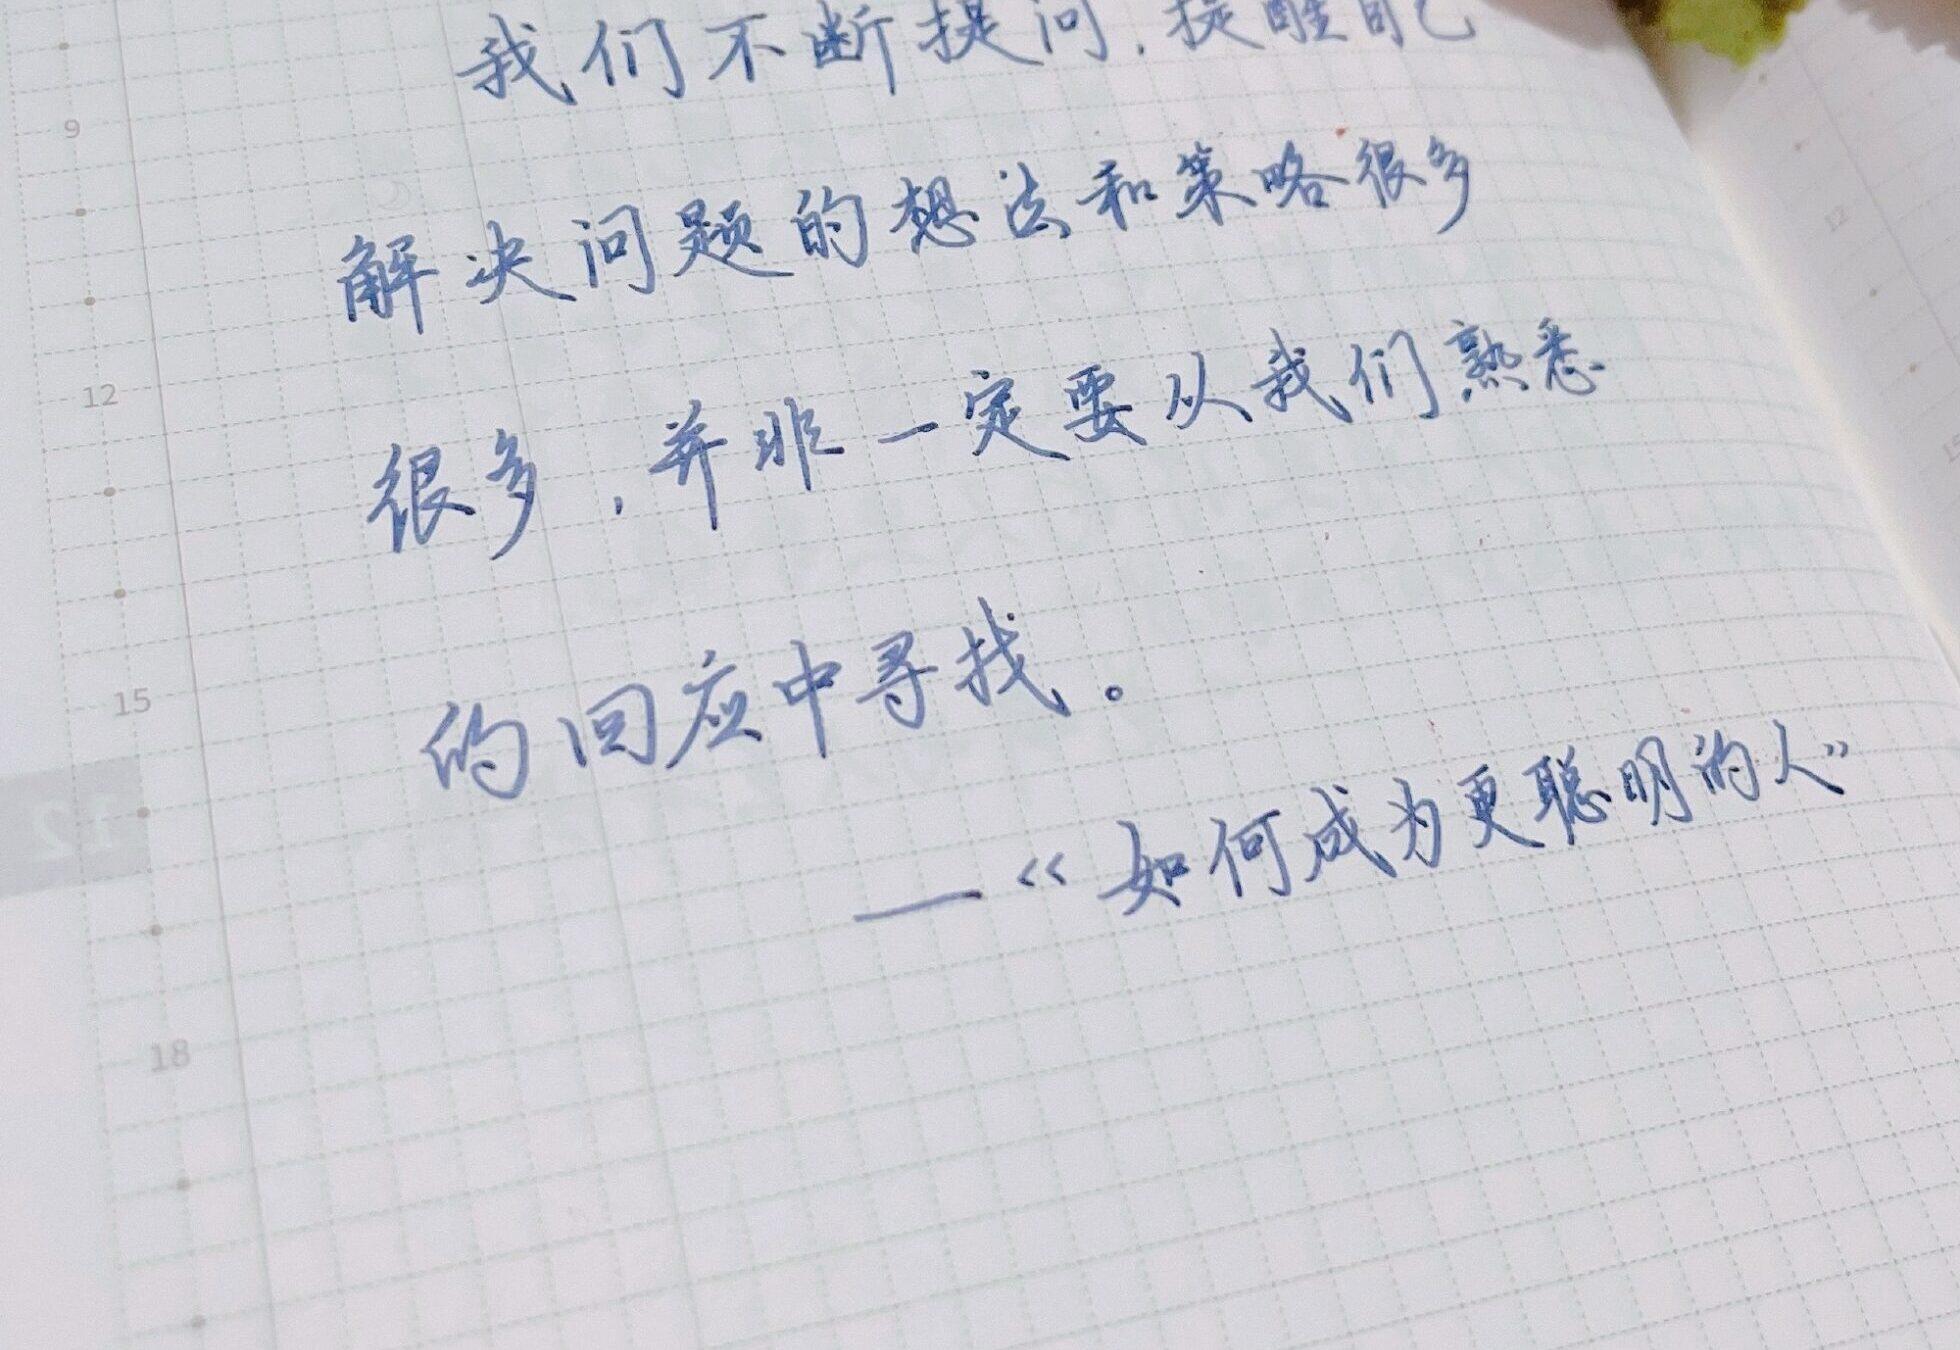 我们不断提问，提醒自己
解决问题的想法和策略很多
很多，并非一定要从我们熟悉
的回应中寻找。
——《如何成为更聪明的人》
9
12
15
12
18
12